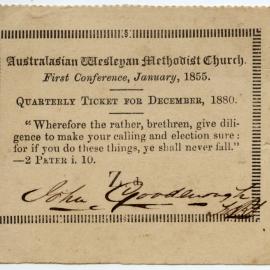 Australasian Wesleyan Methodist Church.
First Conference, January, 1855.
Quarterly Ticket for December, 1880.
“Wherefore the rather, brethren, give dili-
gence to make your calling and election sure:
for if you do these things, ye shall never fall.”
—2 Peter i. 10.
John Goodenough